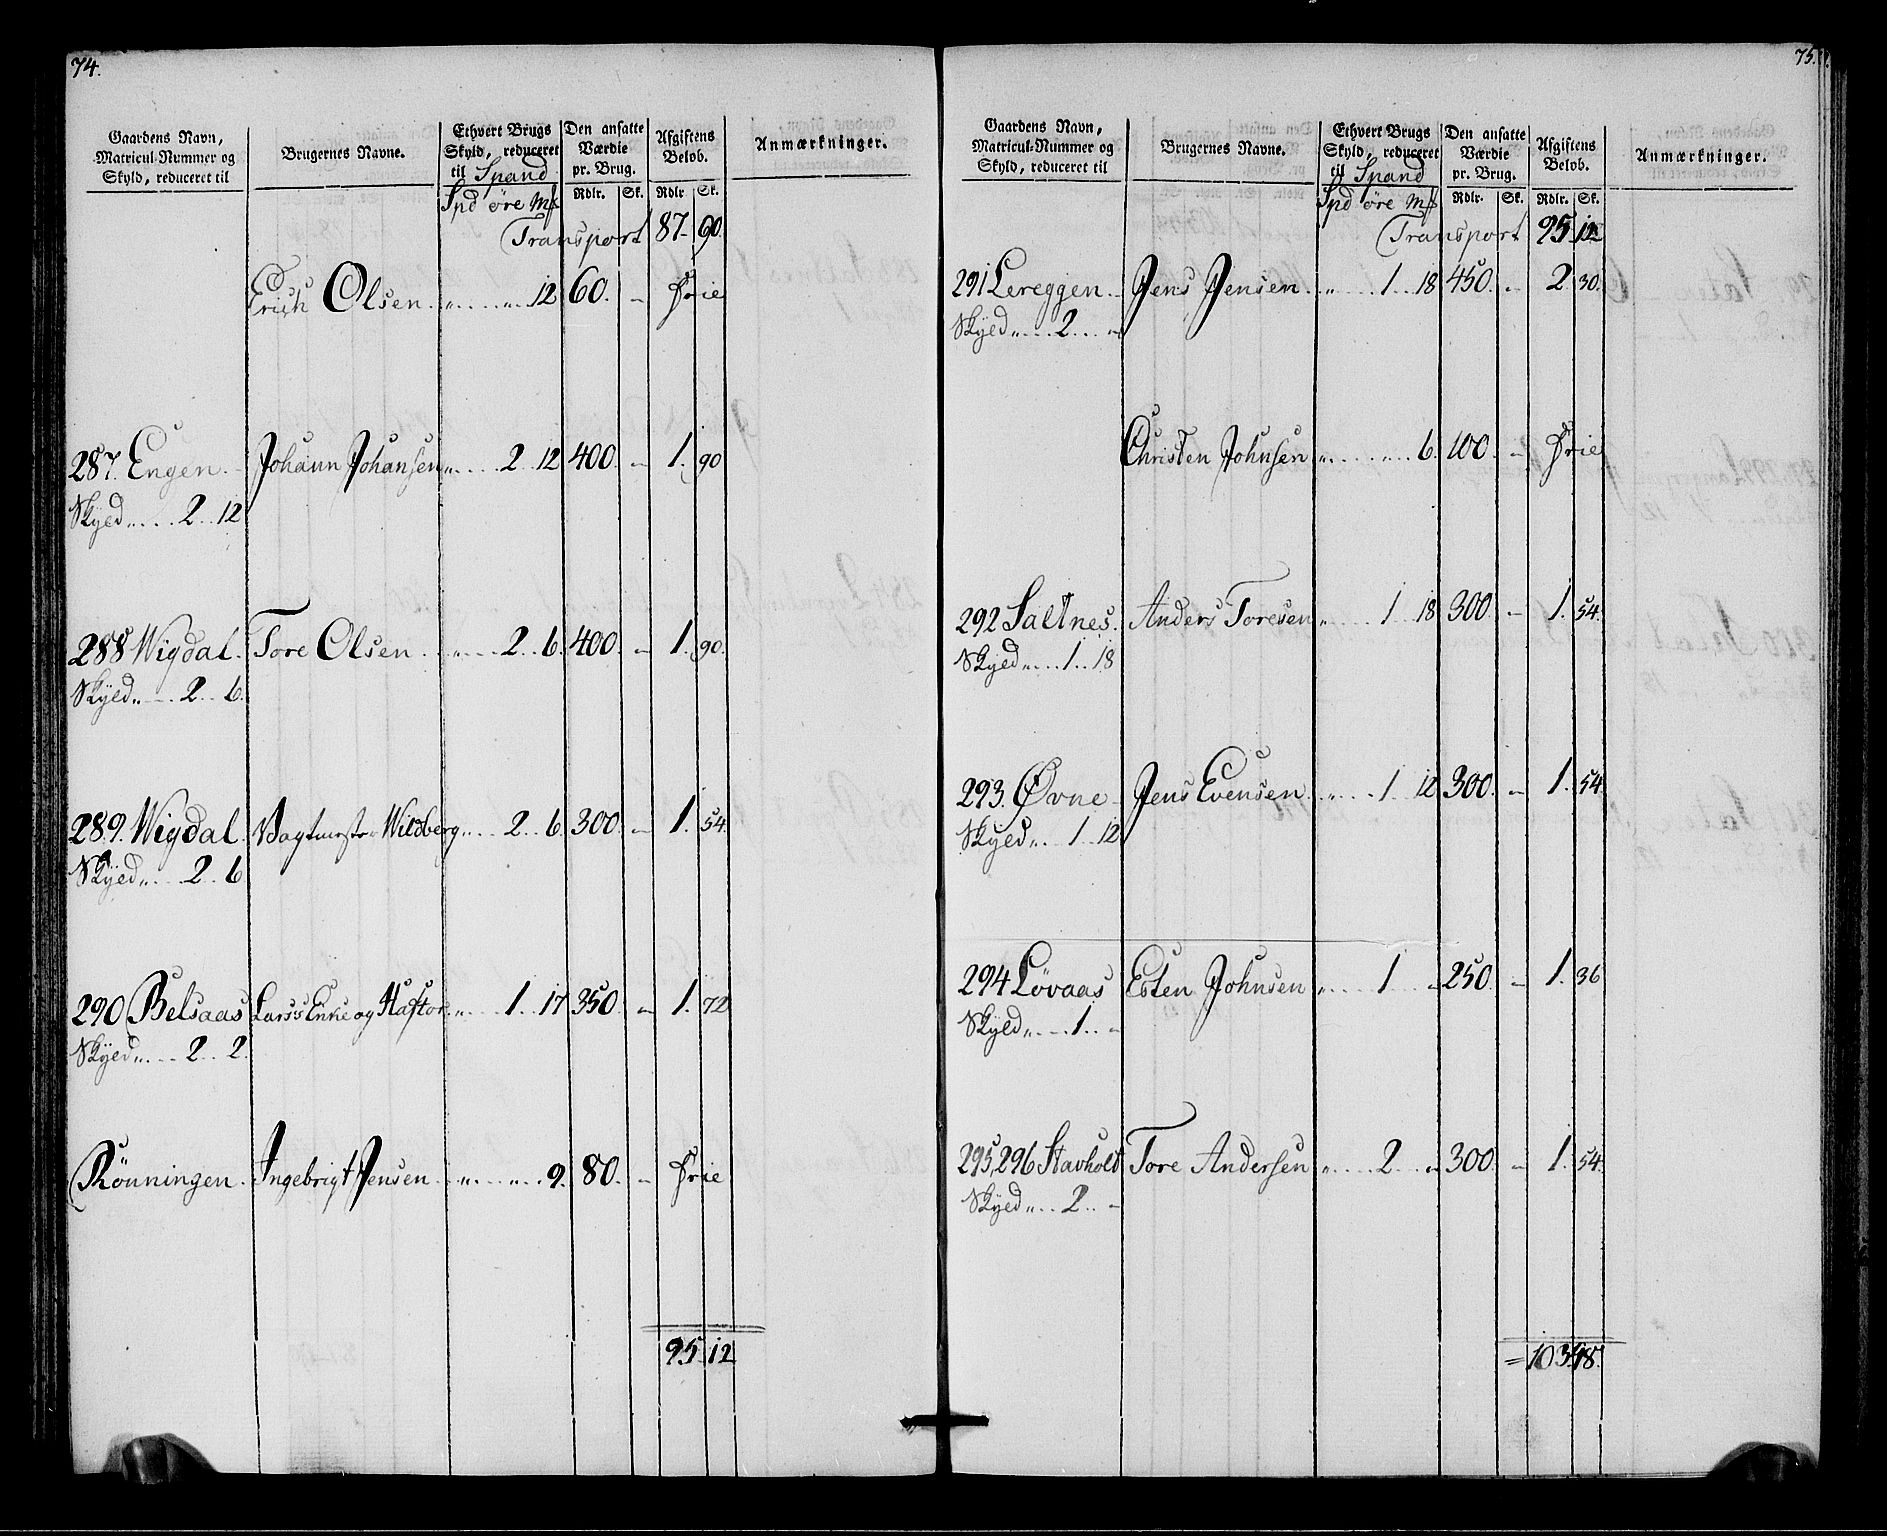 74.
Gaardens Navn, Matricul-Nummer og Skyld, reduceret til
Brugernes Navne.
Ethvert Brugs Skyld, reduceret til Spand
Den ansatte Værdie pr. Brug.
Afgiftens Beløb.
Anmærkninger.
Spd øre Mk Rdlr. Sk. Rdlr. Sk.
Transport 87. 90.
Erich Olsen „ „ 12 60. - Frie
287. Engen. Johann Johansen „ 2 12 400. - 1. 90
Skyed „ 2 12
288 Wigdal. Tore Olsen „ 2 6. 400. - 1. 90.
Skyed „ 2 6.
289. Wigdal Vagtmester Wildberg „ 2 6. 300. - 1. 54.
Skyed „ 2 6
290 Belsaas Larss Enke og Haftor „ 1 17 350. - 1. 72
Skyed „ 2 2.
Rönningen. Ingebrigt Jensen „ „ 9. 80. - Frie
95. 12
75.
Gaardens Navn, Matricul-Nummer og Skyld, reduceret til
Brugernes Navne.
Ethvert Brugs Skyld, reduceret til Spand
Den ansatte Værdie pr. Brug.
Afgiftens Beløb.
Anmærkninger.
Spd øre Mk Rdlr. Sk. Rdlr. Sk.
Transport 95. 12
291 Lereggen Jens Jensen „ 1 18 450. - 2 30.
Skyed „ 2 „
Christen Johnsen „ „ 6. 100. - Frie
292 Saltnes. Anders Toresen „ 1 18 300. - 1. 54.
Skyed „ 1 18
293. Øvne Jens Evensen „ 1 12 300. - 1. 54.
Skyed „ 1 12
294 Lövaas Esten Johnsen „ 1 „ 250. - 1. 36
Skyld „ 1 -
295, 296 Stavholt Tore Andersen „ 2 „ 300. - 1. 54.
Skyed „ 2 -